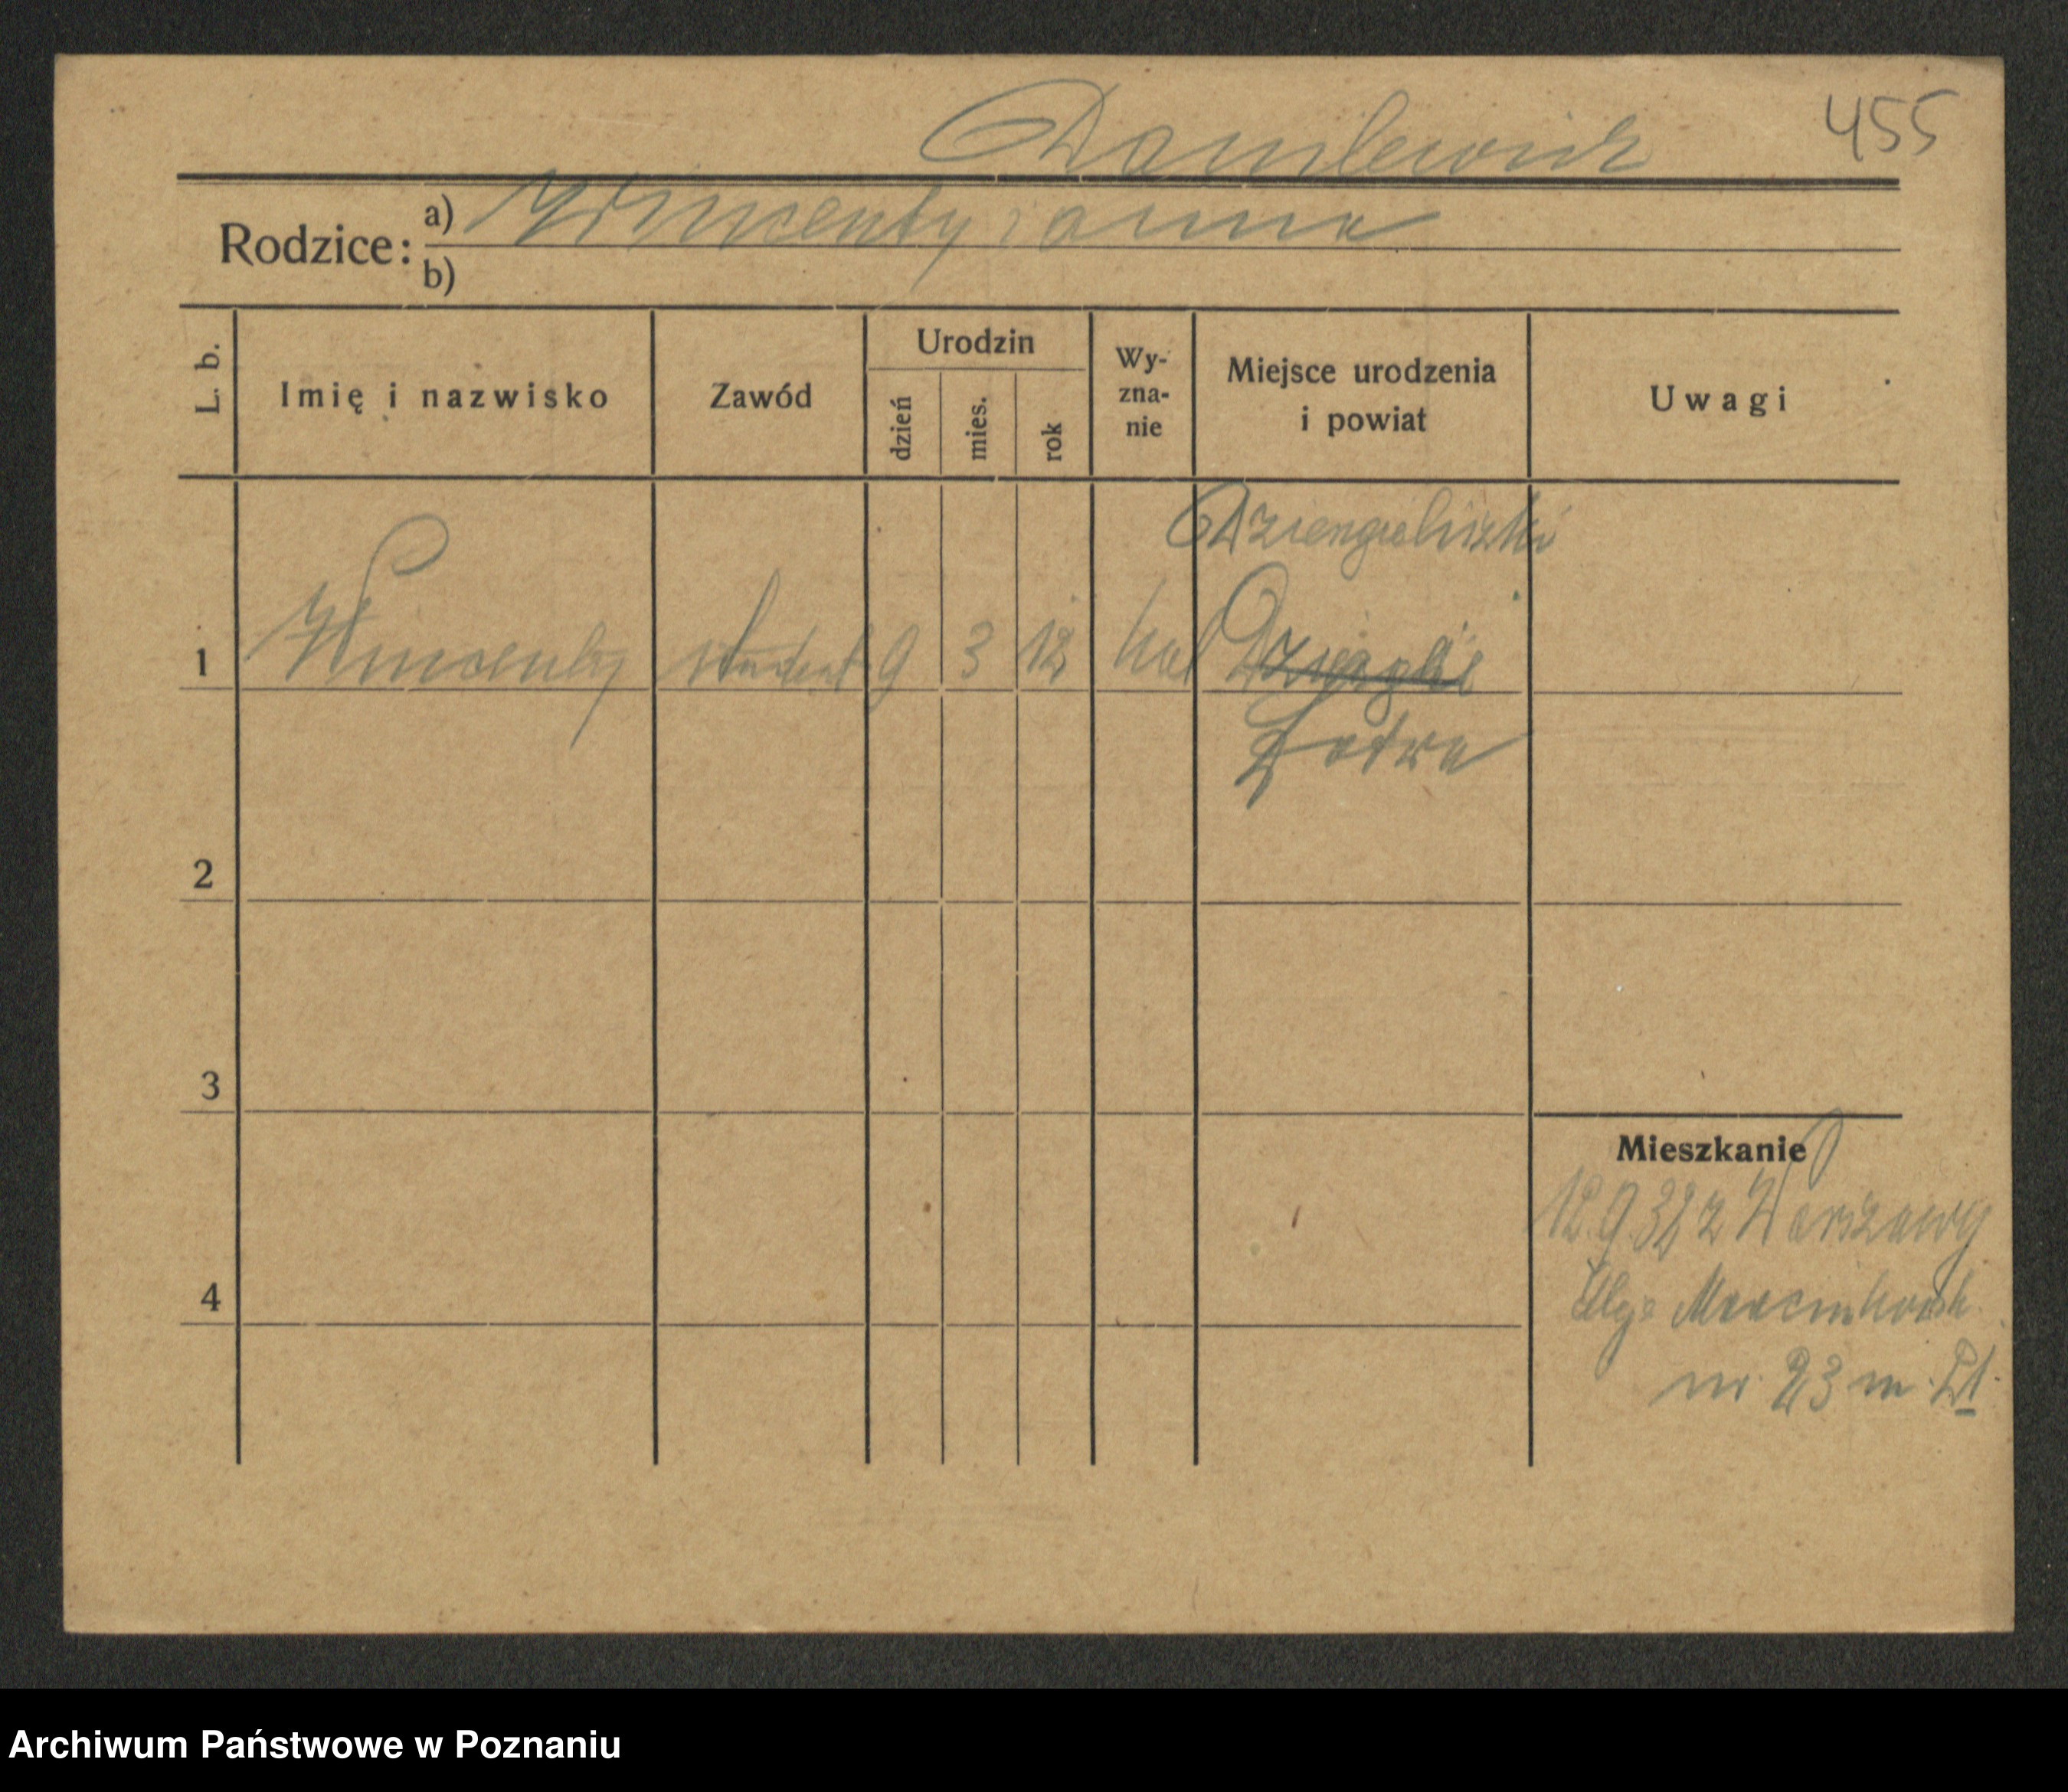 455
Danilewicz
Rodzice: a) Wincenty i Anna
b)
L. b. Imię i nazwisko Zawód Urodzin dzień mies. rok Wy-zna-nie Miejsce urodzenia i powiat Uwagi
Dziengieliszki
1 Wincenty student 9 3 12 kat
Łotwa
2
3
Mieszkanie
12.9.32 z Warszawy
4
Marcinkowsk.
nr. 23 m.
Archiwum Państwowe w Poznaniu